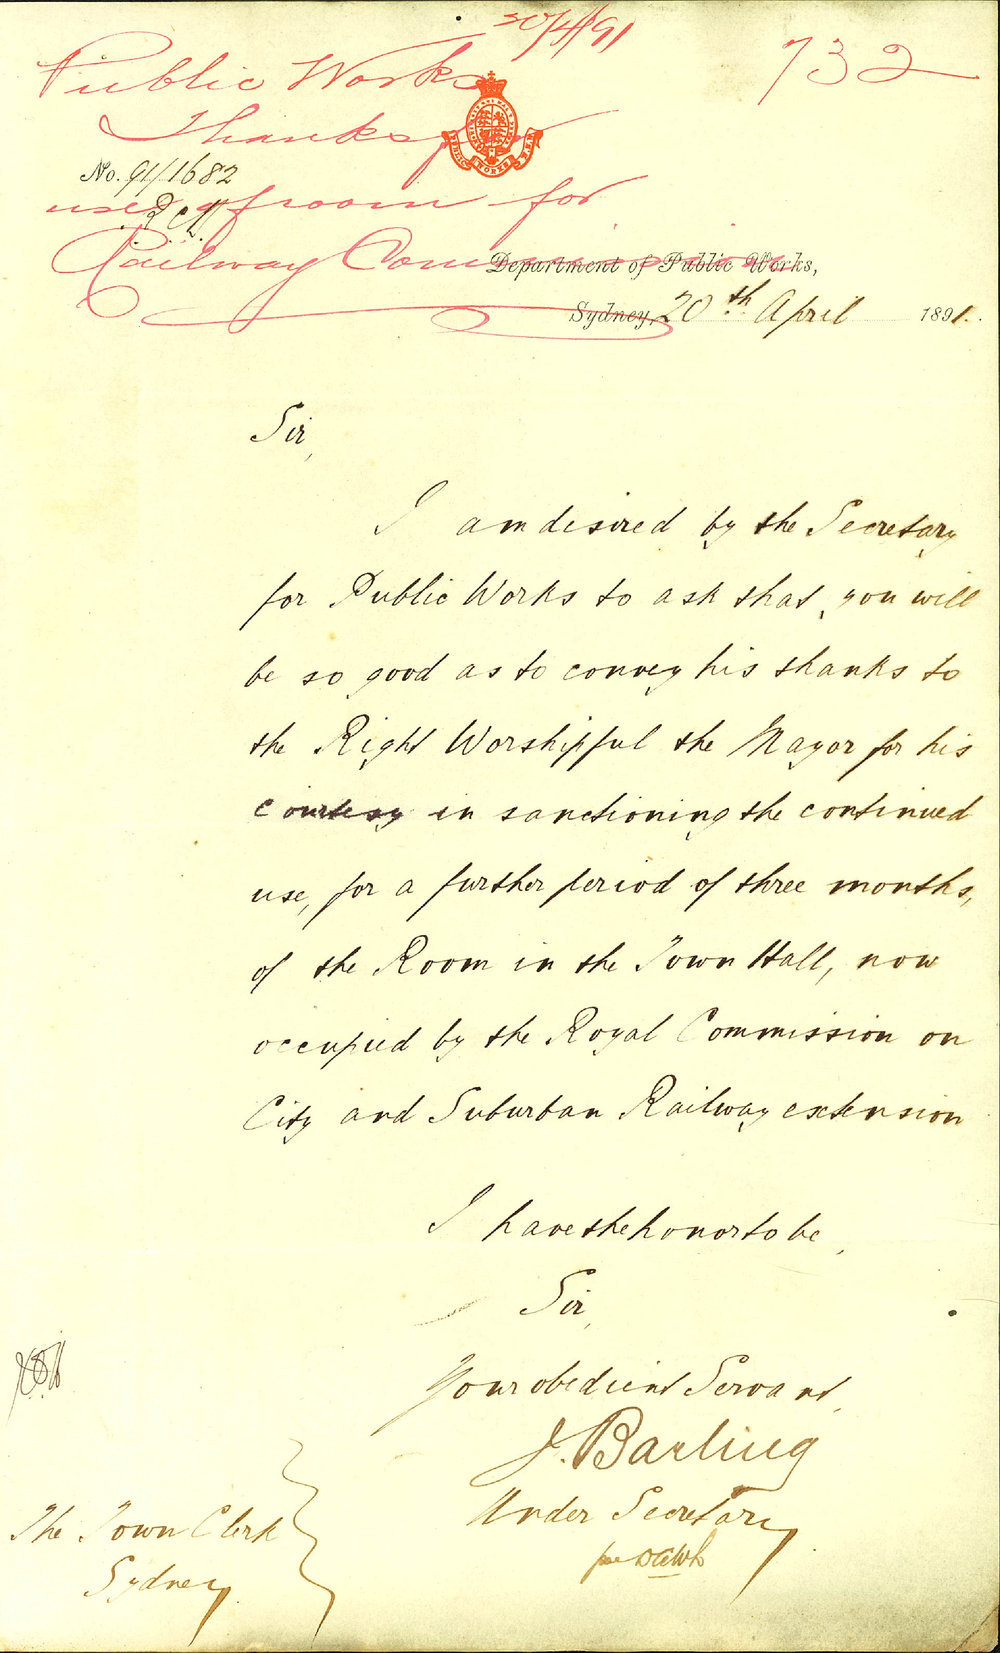 20/4/91
732
Public Works
Thanks for
No. 91/1682
use of room for
Railway Commission
PUBLIC WORKS N.S.W.
Department of Public Works,
Sydney, 20th April 1891.
Sir,
I am desired by the Secretary
for Public Works to ask that, you will
be so good as to convey his thanks to
the Right Worshipful the Mayor for his
courtesy in sanctioning the continued
use, for a further period of three months,
of the Room in the Town Hall, now
occupied by the Royal Commission on
City and Suburban Railway extension
I have the honor to be,
Sir,
Your obedient Servant,
J. Barling
Under Secretary
per
The Town Clerk
Sydney